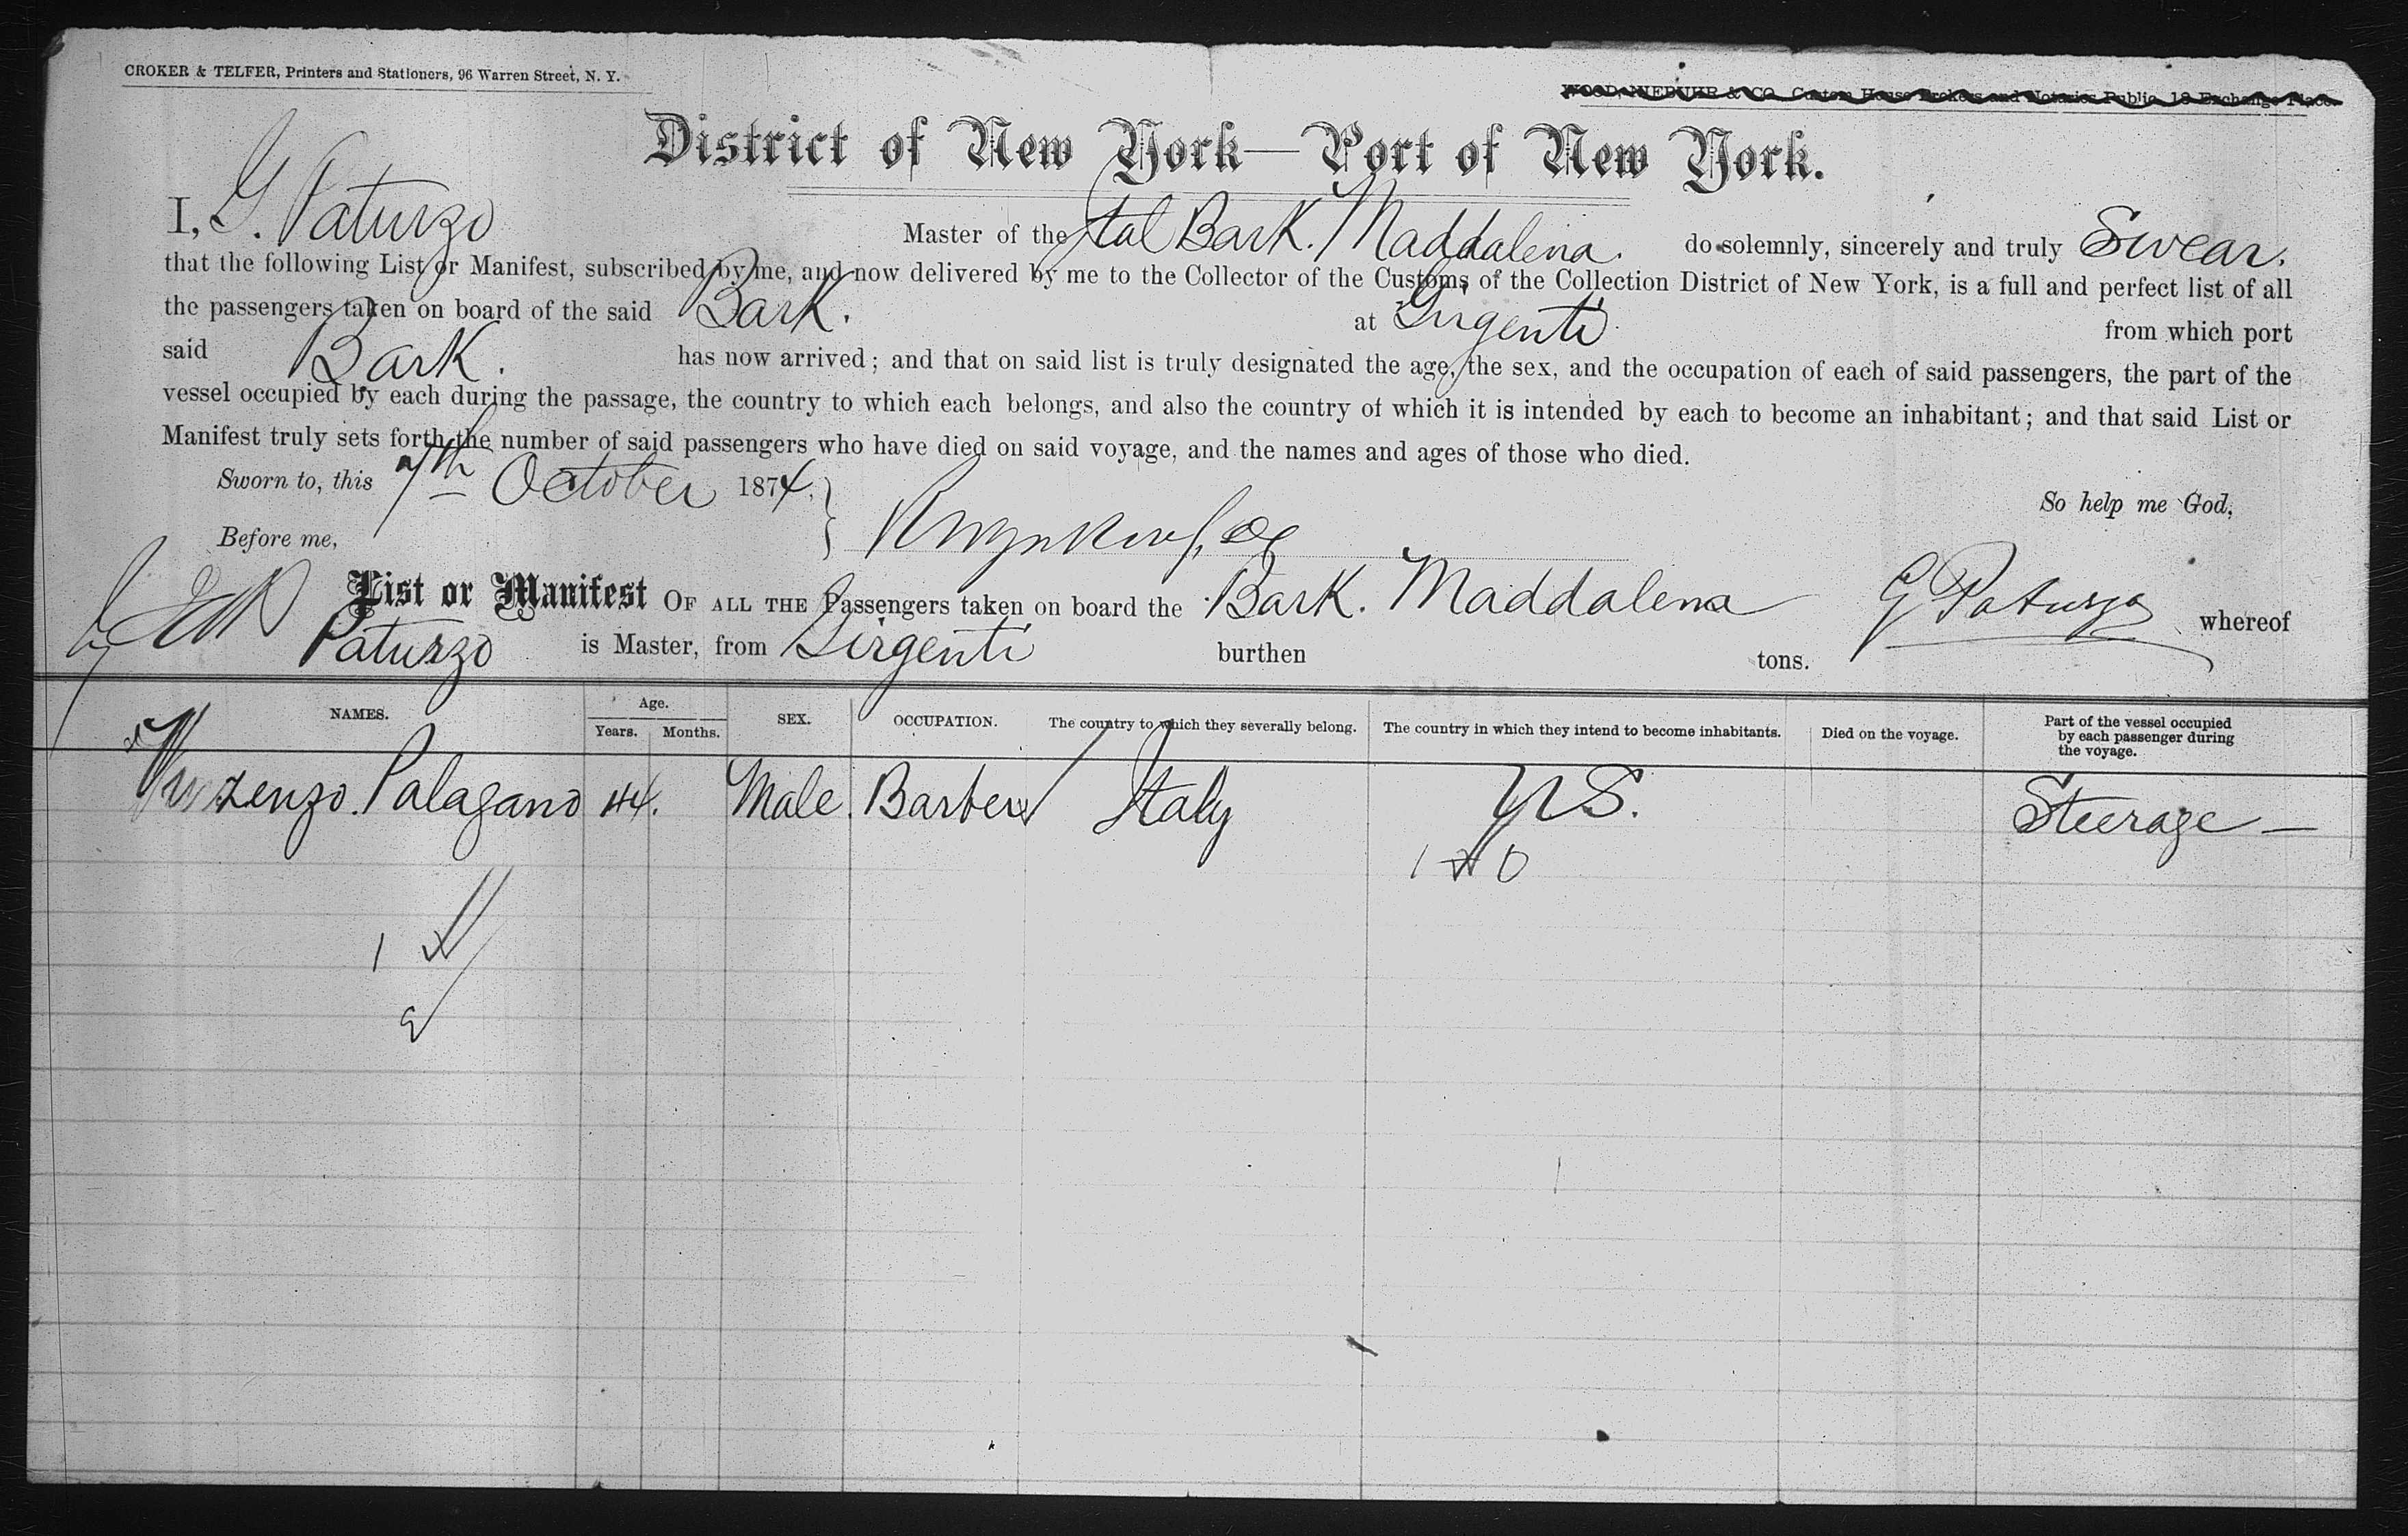 CROKER & TELFER, Printers and Stationers, 96 Warren Street, N. Y.
WOOD, NIEBUHR & CO. Custom House Brokers and Notaries Public, 18 Exchange Place.
District of New York—Port of New York.
I, G. Paturzo Master of the Ital Bark. Maddalena. do solemnly, sincerely and truly Swear.
that the following List or Manifest, subscribed by me, and now delivered by me to the Collector of the Customs of the Collection District of New York, is a full and perfect list of all
the passengers taken on board of the said Bark. at Girgenti from which port
said Bark. has now arrived; and that on said list is truly designated the age, the sex, and the occupation of each of said passengers, the part of the
vessel occupied by each during the passage, the country to which each belongs, and also the country of which it is intended by each to become an inhabitant; and that said List or
Manifest truly sets forth the number of said passengers who have died on said voyage, and the names and ages of those who died.
Sworn to, this 7th October 1874. So help me God,
Before me,
List or Manifest OF ALL THE Passengers taken on board the Bark. Maddalena G Paturzo whereof
Paturzo is Master, from Girgenti burthen tons.
NAMES. Age. Years. Months. SEX. OCCUPATION. The country to which they severally belong. The country in which they intend to become inhabitants. Died on the voyage. Part of the vessel occupied by each passenger during the voyage.
Vinzenzo. Palagano 44. Male. Barber Italy US. Steerage —
1 0
1